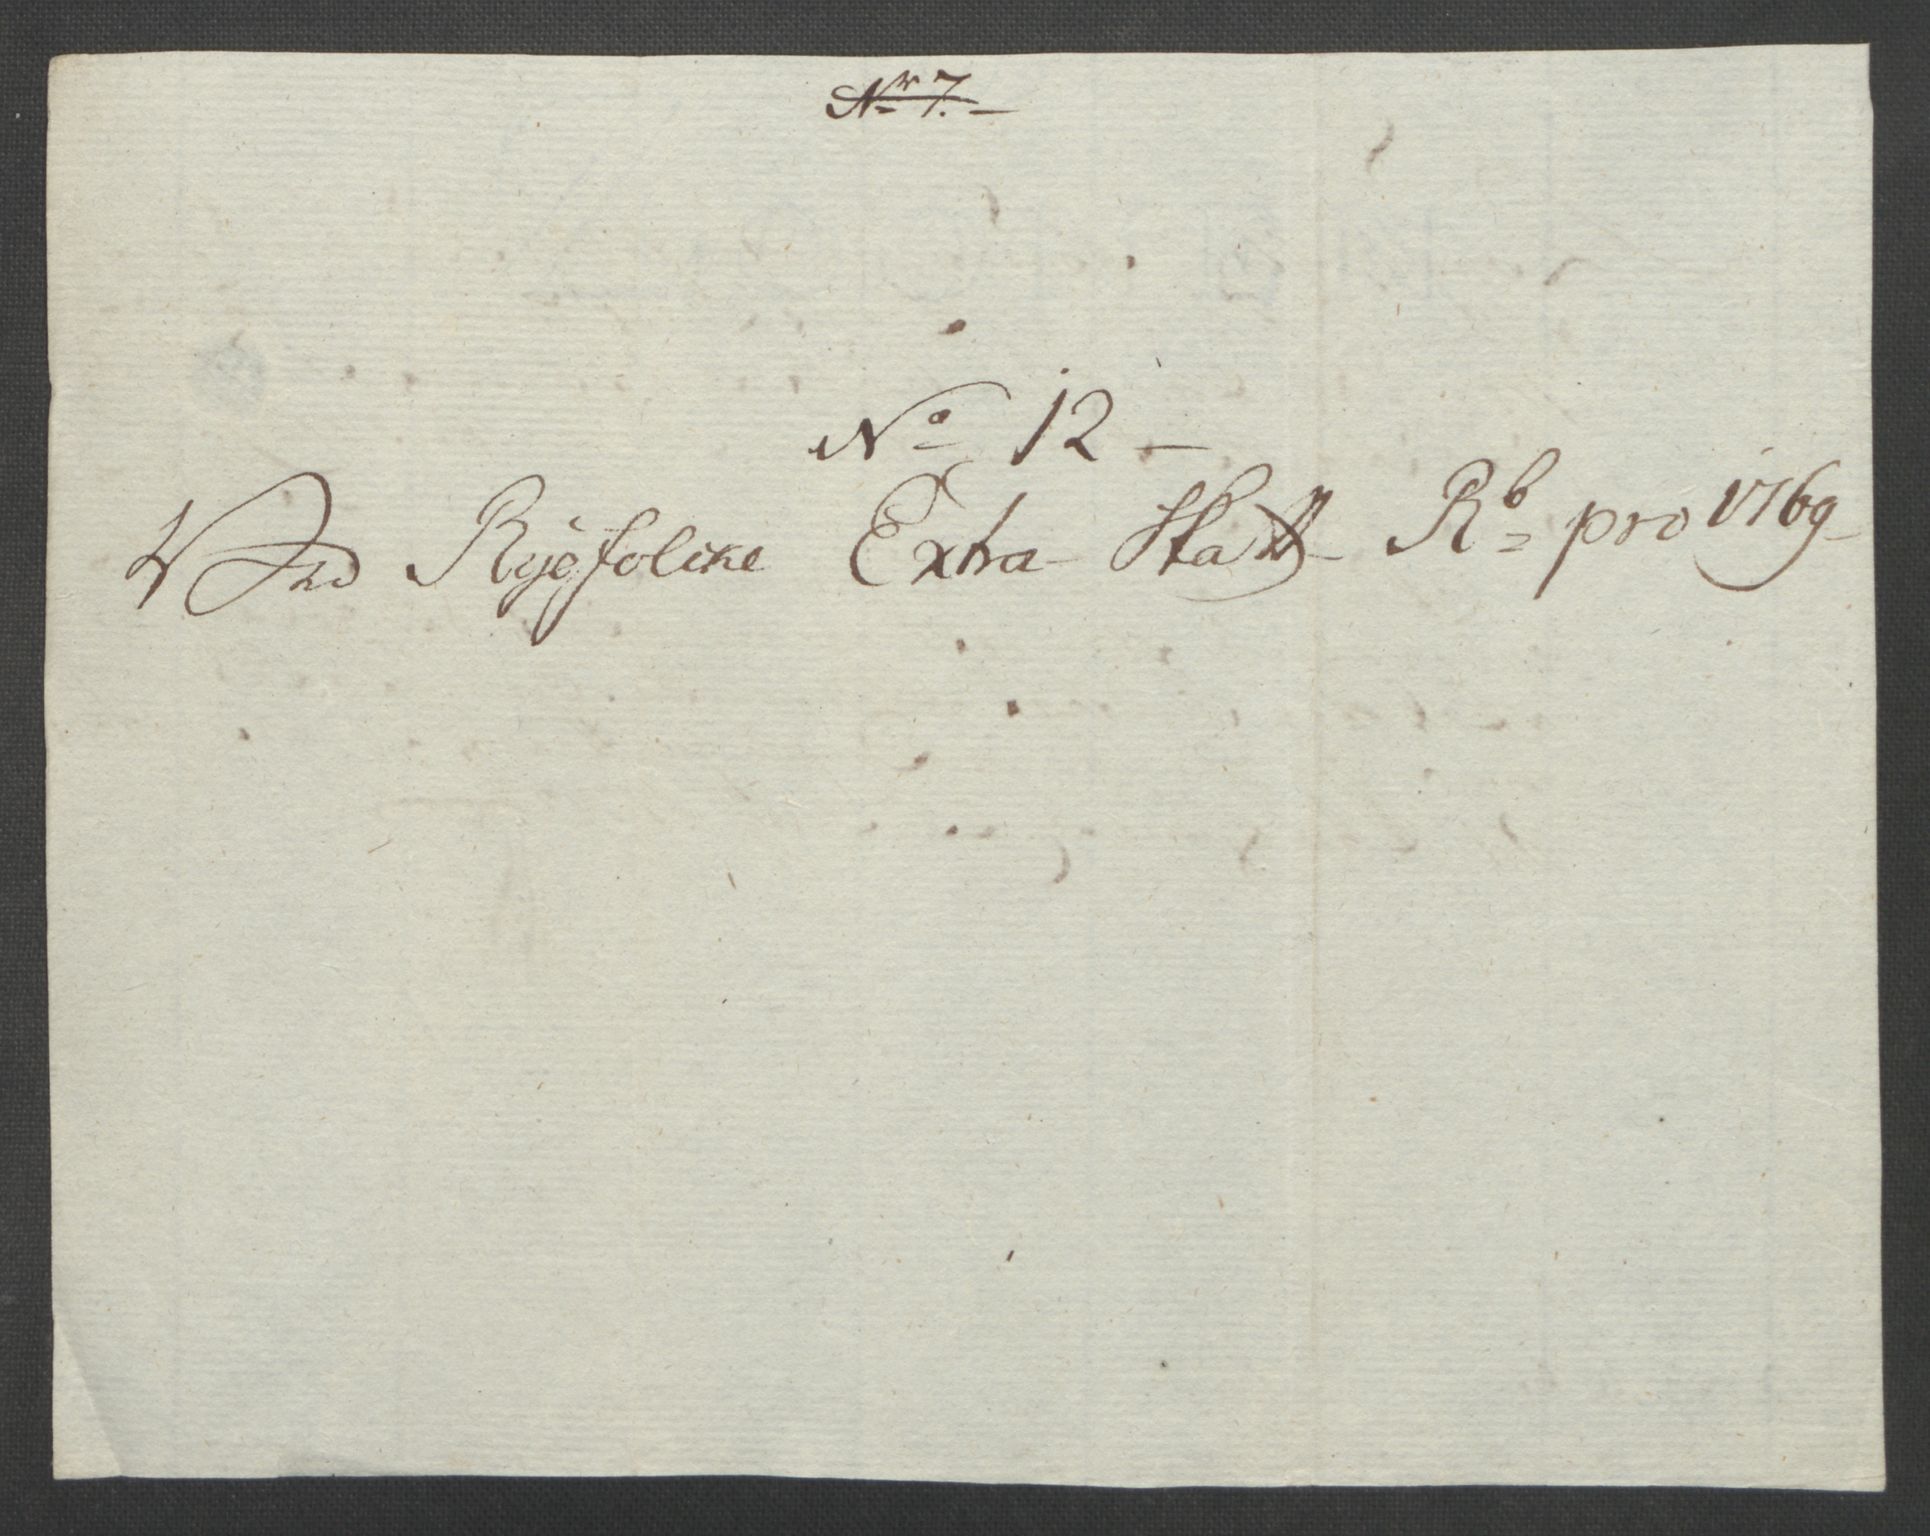 Nr 7.
No 12
Ved Ryefolcke Extra Skatt Rb pro 1769